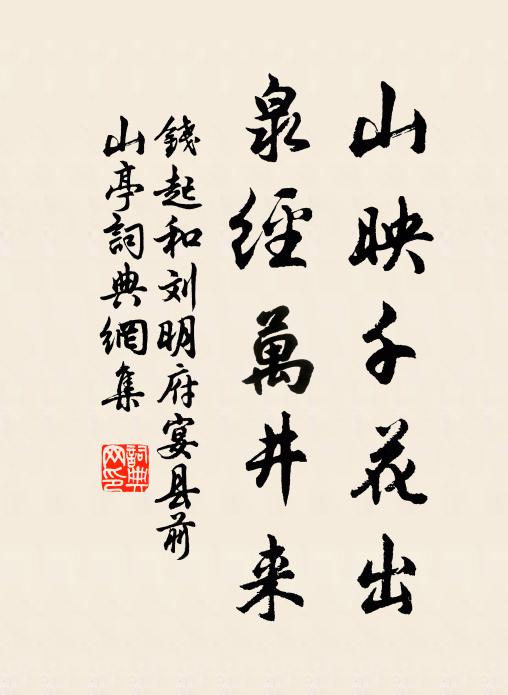 山映千花出
泉經萬井来
錢起和刘明府宴县前
山亭詞典網集
詞典
网印